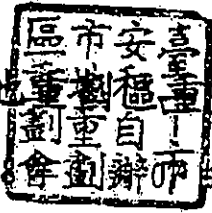 臺中市
安穩自辦
市地重劃
區重劃會